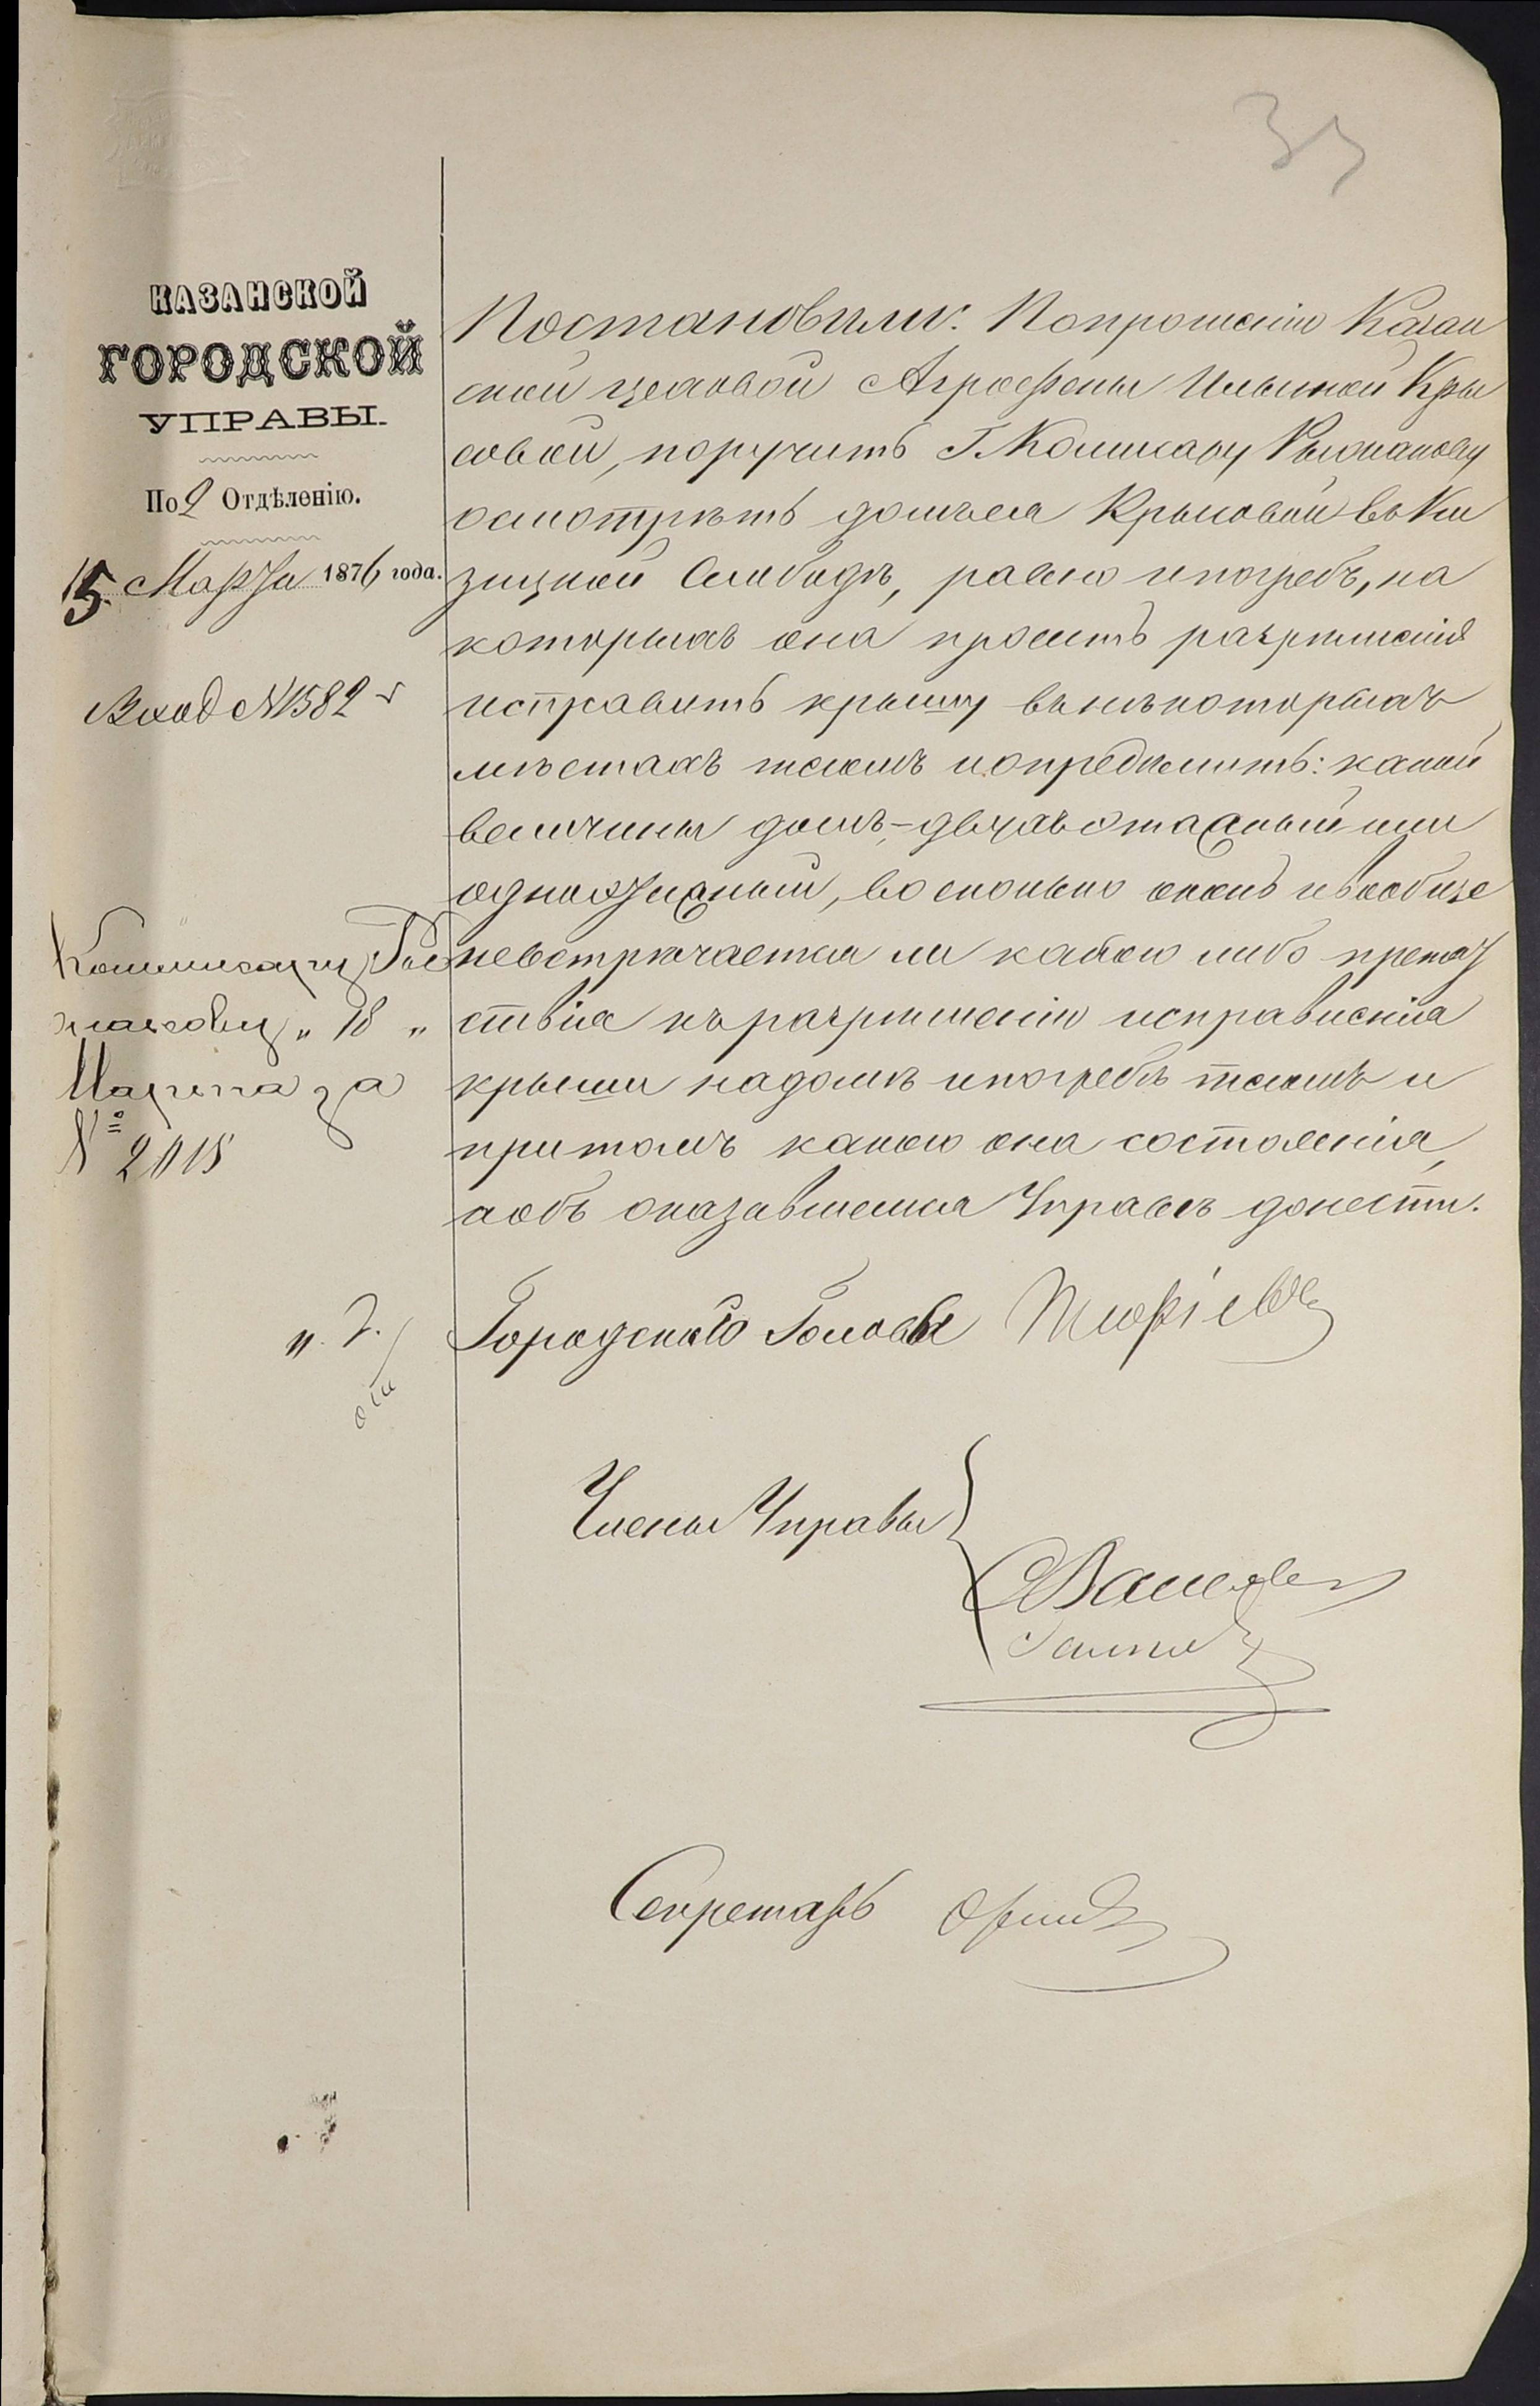 33
КАЗАНСКОЙ
ГОРОДСКОЙ
УПРАВЫ.
По 2 Отдѣленію.
15 Марта 1876 года.
Вход №1582
Коммисару Рық
макову „ 18 „
Марта за
№ 2015
Постановили: Попрошенію Казан
ской цеховой Аграфены Ильиной Кры
совой, поручить Г. Комисару
осмотрѣть домъ ея Крысовой въ Ки
зицкой Слободѣ, равно и погребъ, на
которыхъ она проситъ разрѣшенія
исправить крышу въ нѣкоторыхъ
мѣстахъ тесомъ и опредѣлить: какой
величины домъ, - двухъ этажный или
одноэтажный, во сколько оконъ и вообще
невстрѣчается ли какого либо препят
ствія къ разрѣшенію исправленія
крыши на домѣ и погребѣ тесомъ и
притомъ какого она состоянія,
а объ оказавшемся Управѣ донести.
и. д. Городскаго Головы
Члены Управы
Секретарь